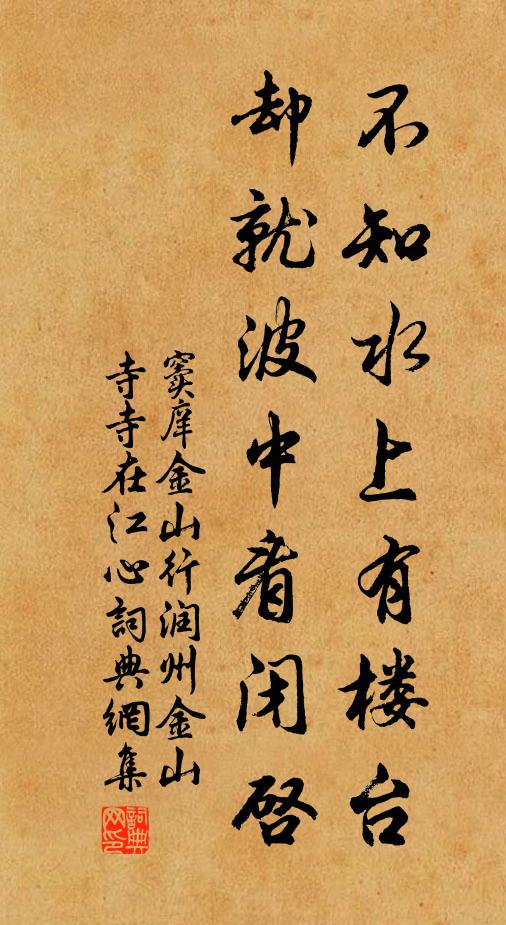 不知水上有楼台
却就波中看闭启
窦庠金山行润州金山
寺寺在江心詞典網集
詞典
网印